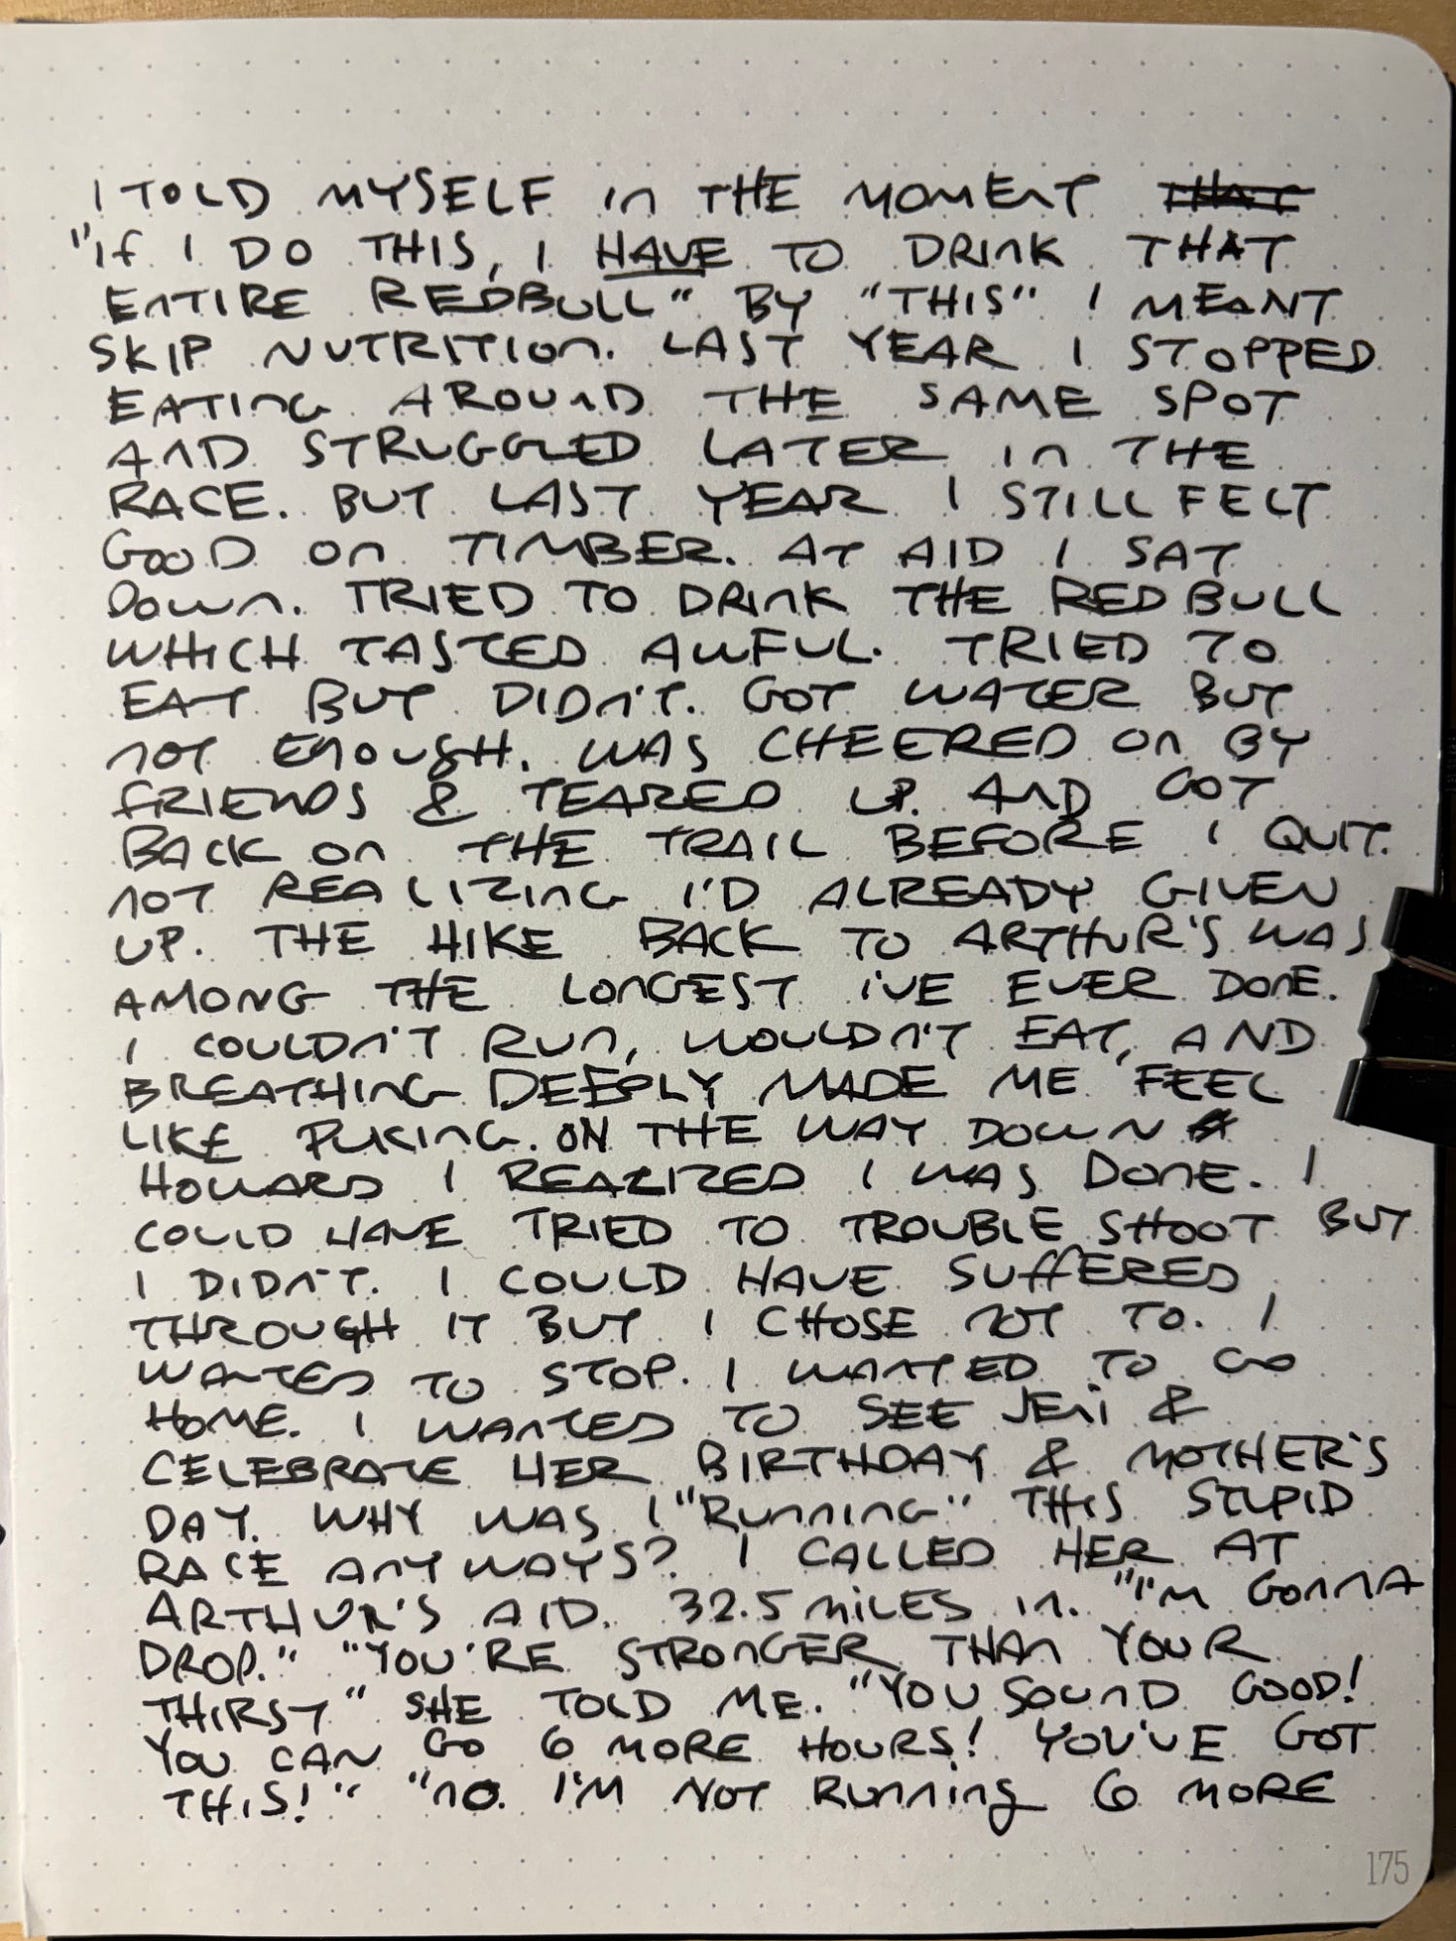 I TOLD MYSELF IN THE MOMENT THAT
"IF I DO THIS, I HAVE TO DRINK THAT
ENTIRE REDBULL" BY "THIS" I MEANT
SKIP NUTRITION. LAST YEAR I STOPPED
EATING AROUND THE SAME SPOT
AND STRUGGLED LATER IN THE
RACE. BUT LAST YEAR I STILL FELT
GOOD ON TIMBER. AT AID I SAT
DOWN. TRIED TO DRINK THE RED BULL
WHICH TASTED AWFUL. TRIED TO
EAT BUT DIDN'T. GOT WATER BUT
NOT ENOUGH. WAS CHEERED ON BY
FRIENDS & TEARED UP. AND GOT
BACK ON THE TRAIL BEFORE I QUIT.
NOT REALIZING I'D ALREADY GIVEN
UP. THE HIKE BACK TO ARTHUR'S WAS
AMONG THE LONGEST I'VE EVER DONE.
I COULDN'T RUN, WOULDN'T EAT, AND
BREATHING DEEPLY MADE ME FEEL
LIKE PUKING. ON THE WAY DOWN
HOWARD I REALIZED I WAS DONE. I
COULD HAVE TRIED TO TROUBLE SHOOT BUT
I DIDN'T. I COULD HAVE SUFFERED
THROUGH IT BUT I CHOSE NOT TO. I
WANTED TO STOP. I WANTED TO GO
HOME. I WANTED TO SEE JENI &
CELEBRATE HER BIRTHDAY & MOTHER'S
DAY. WHY WAS I "RUNNING" THIS STUPID
RACE ANYWAYS? I CALLED HER AT
ARTHUR'S AID. 32.5 MILES IN. "I'M GONNA
DROP." "YOU'RE STRONGER THAN YOUR
THIRST" SHE TOLD ME. "YOU SOUND GOOD!
YOU CAN GO 6 MORE HOURS! YOU'VE GOT
THIS!" "NO. I'M NOT RUNNING 6 MORE
175